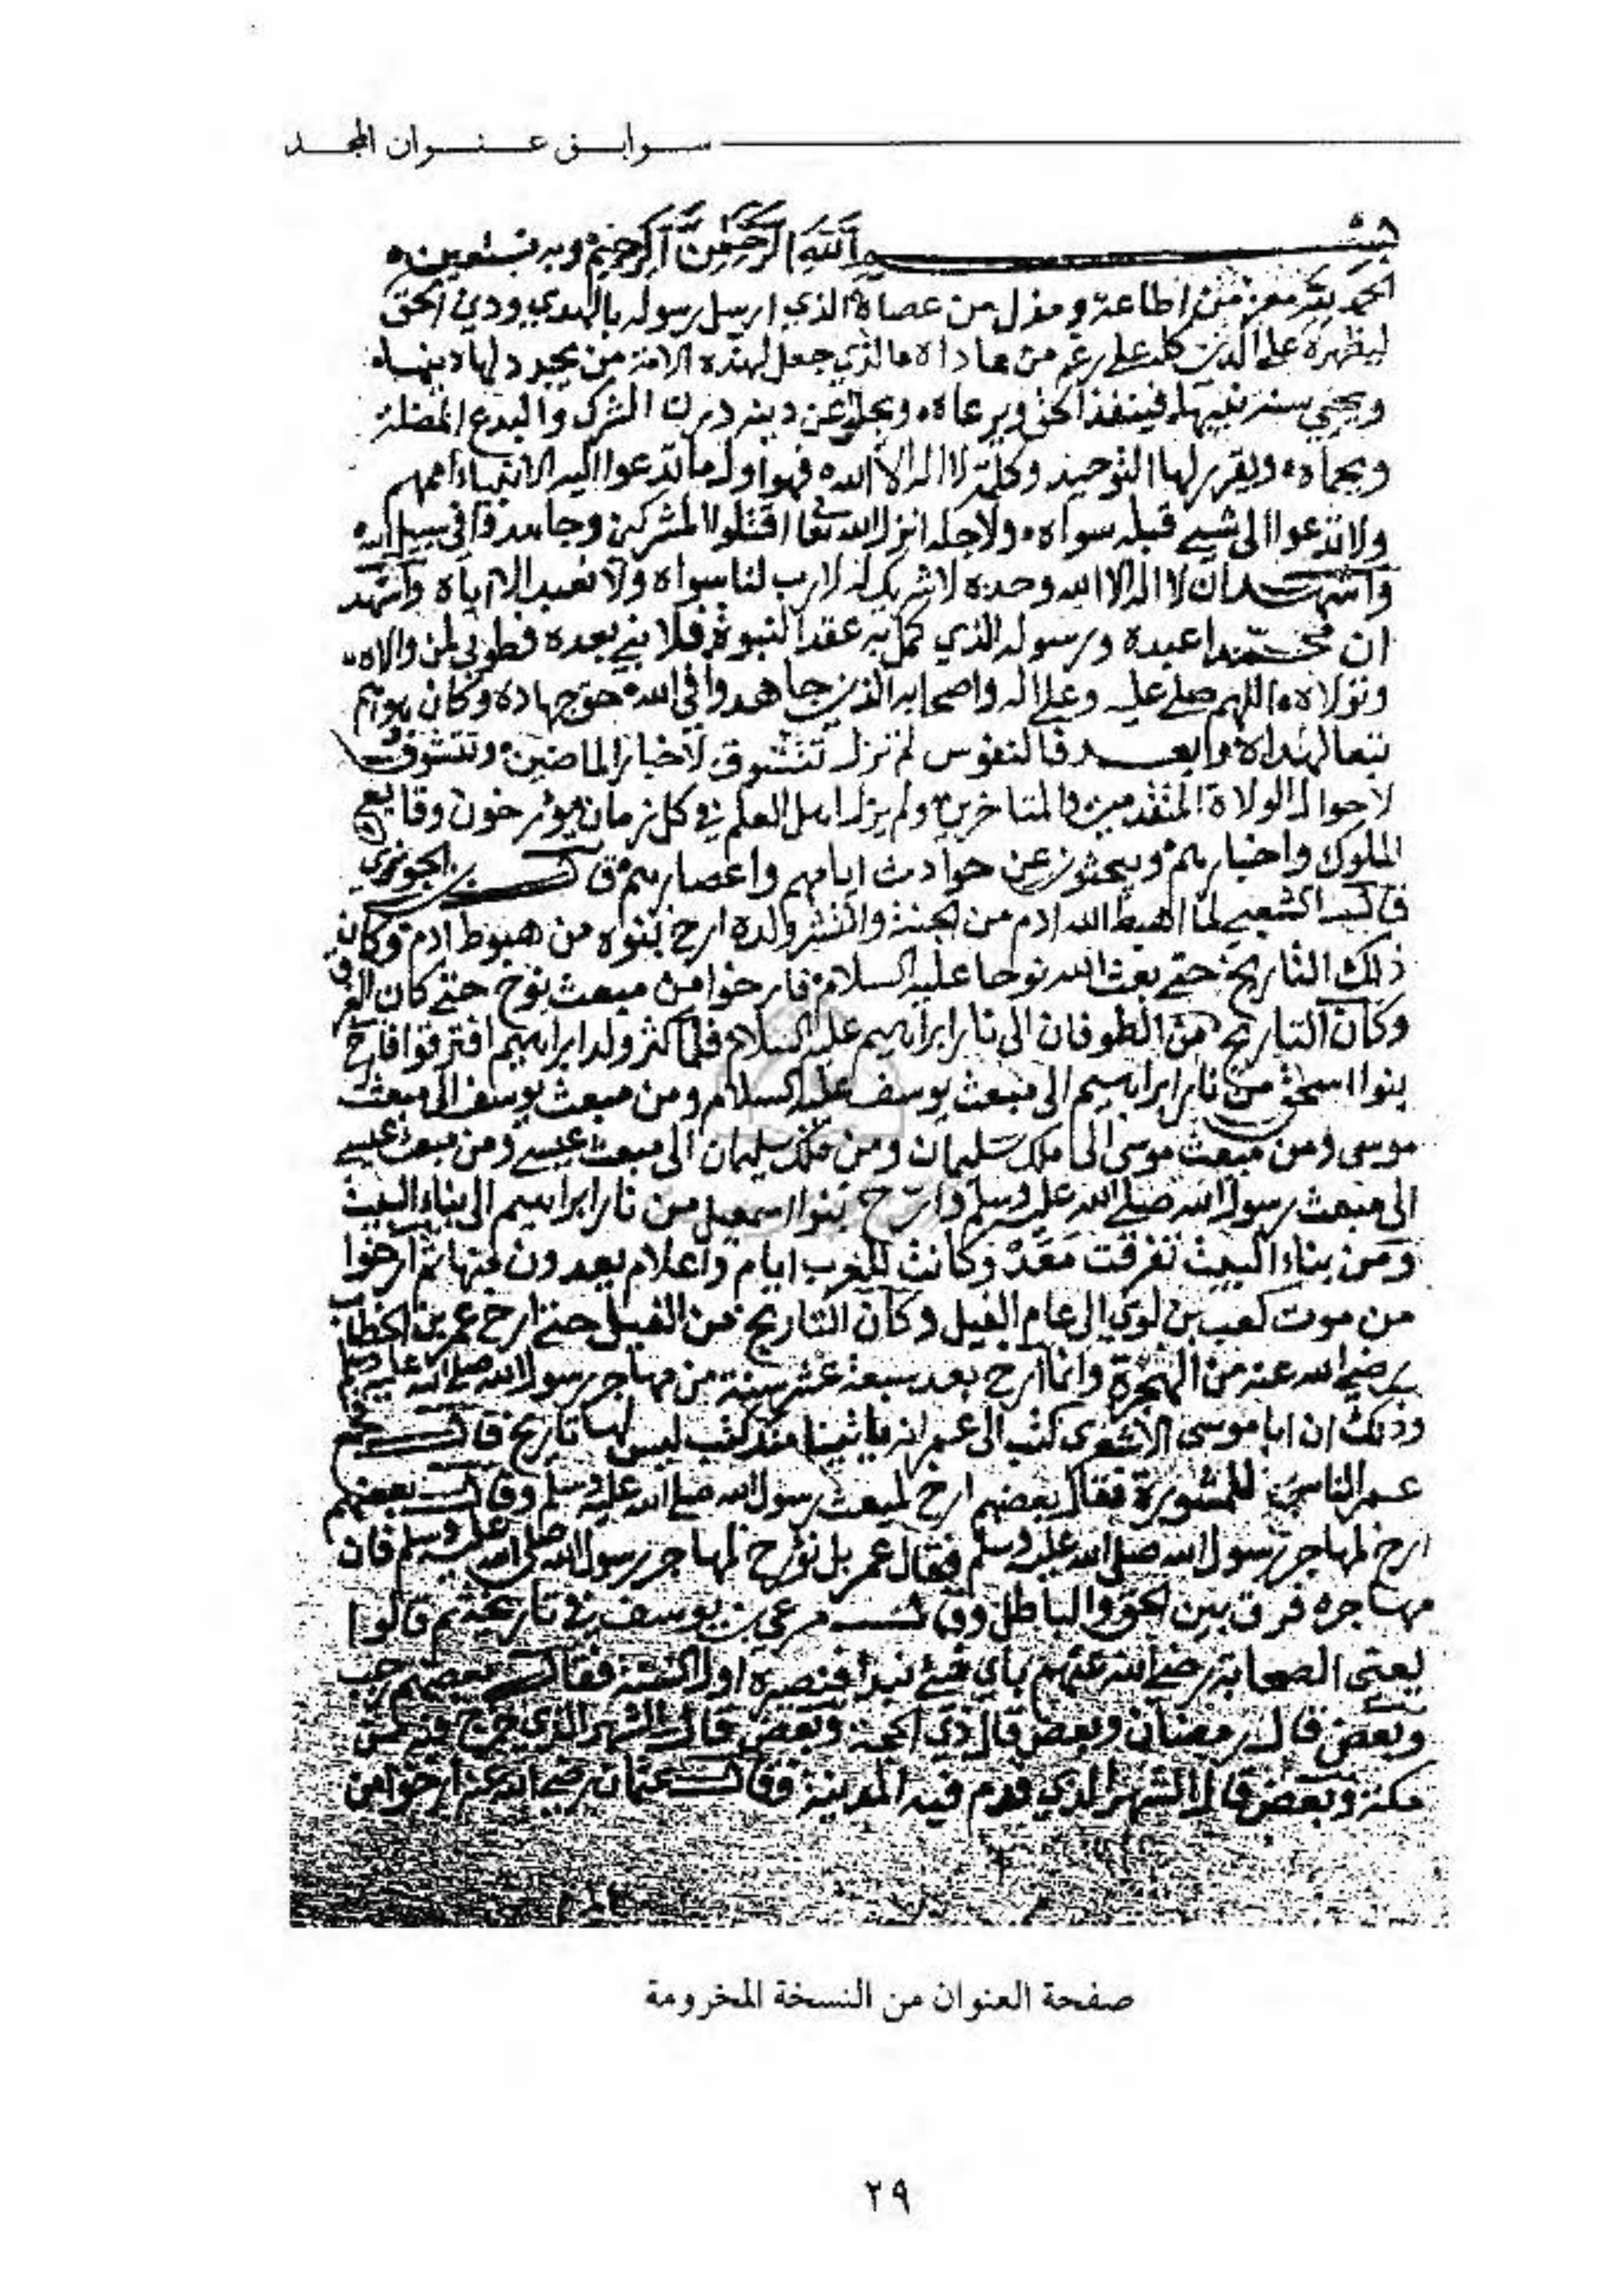 سوابق عنوان المجد
بسم الله الرحمن الرحيم وبه نستعين
الحمد لله معز من اطاعه ومذل من عصاه الذي ارسل رسوله بالهدي ودين الحق
ليظهره على الدين كله على رغم من عاداه الذي جعل لهذه الامة من يجدد لها دينها
ويحيي سنة نبيها فينفذ الحق ويرعاه ويجلو عن دينه درن الشرك والبدع المضلة
وحماه ويقرر لها التوحيد وكلمة لا اله الا الله فهو اول ما تدعوا اليه الانبياء اممهم
ولا تدعوا الى شيء قبله سواه ولاجله انزل الله تعا اقتلوا المشركين وجاهدوا في سبيل الله
واشهد ان لا اله الا الله وحده لا شريك له لا رب لنا سواه ولا نعبد الا اياه واشهد
ان محمدا عبده ورسوله الذي كمل به عقد النبوة فلا نبي بعده فطوبي لمن والاه
وتولاه اللهم صل عليه وعلى اله واصحابه الذين جاهدوا في الله حق جهاده وكان هواهم
تبعا لهداه وبعد فالنفوس لم تزل تتشوق لاخبار الماضين وتتشوف
لاحوال الولاة المتقدمين والمتاخرين ولم يزل اهل العلم في كل زمان يورخون وقايع
الملوك واخبارهم ويبحثون عن حوادث ايامهم واعصارهم قال بن الجوزي
قال الشعبي لما اهبط الله ادم من الجنة وانتشر ولده ارخ بنوه من هبوط ادم وكان
ذلك التاريخ حتى بعث الله نوحا عليه السلام فارخوا من مبعث نوح حتى كان الغرق
وكان التاريخ من الطوفان الى نار ابراهيم عليه السلام فلما كثر ولد ابراهيم افترقوا فارخ
بنوا اسحق من نار ابراهيم الى مبعث يوسف عليه السلام ومن مبعث يوسف الى مبعث
موسى ومن مبعث موسى الى ملك سليمان ومن ملك سليمان الى مبعث عيسى ومن مبعث عيسى
الى مبعث رسول الله صلى الله عليه وسلم وارخ بنوا اسمعيل من نار ابراهيم الى بناء البيت
ومن بناء البيت تفرقت معد وكانت للعرب ايام واعلام يعدون منها ثم ارخوا
من موت كعب بن لوي الى عام الفيل وكان التاريخ من الفيل حتى ارخ عمر بن الخطاب
رضي الله عنه من الهجرة وانما ارخ بعد سبعة عشر سنة من مهاجر رسول الله صلى الله عليه وسلم
وذلك ان ابا موسى الاشعري كتب الى عمر انه ياتينا منك كتب ليس لها تاريخ قال فجمع
عمر الناس للمشورة فقال بعضهم ارخ لمبعث رسول الله صلى الله عليه وسلم وقال بعضهم
ارخ لمهاجر رسول الله صلى الله عليه وسلم فقال عمر بل نورخ لمهاجر رسول الله صلى الله عليه وسلم فان
مهاجره فرق بين الحق والباطل وقال مرعي بن يوسف في تاريخه ثم قالوا
يعني الصحابة رضي الله عنهم باي شيء نبدا فنصيره اول السنة فقال بعضهم رجب
وبعض قال رمضان وبعض قال ذي الحجة وبعض قال الشهر الذي خرج فيه من
مكة وبعض قال الشهر الذي قدم فيه المدينة فقال عثمان رضي الله عنه ارخوا من
صفحة العنوان من النسخة المخرومة
٢٩